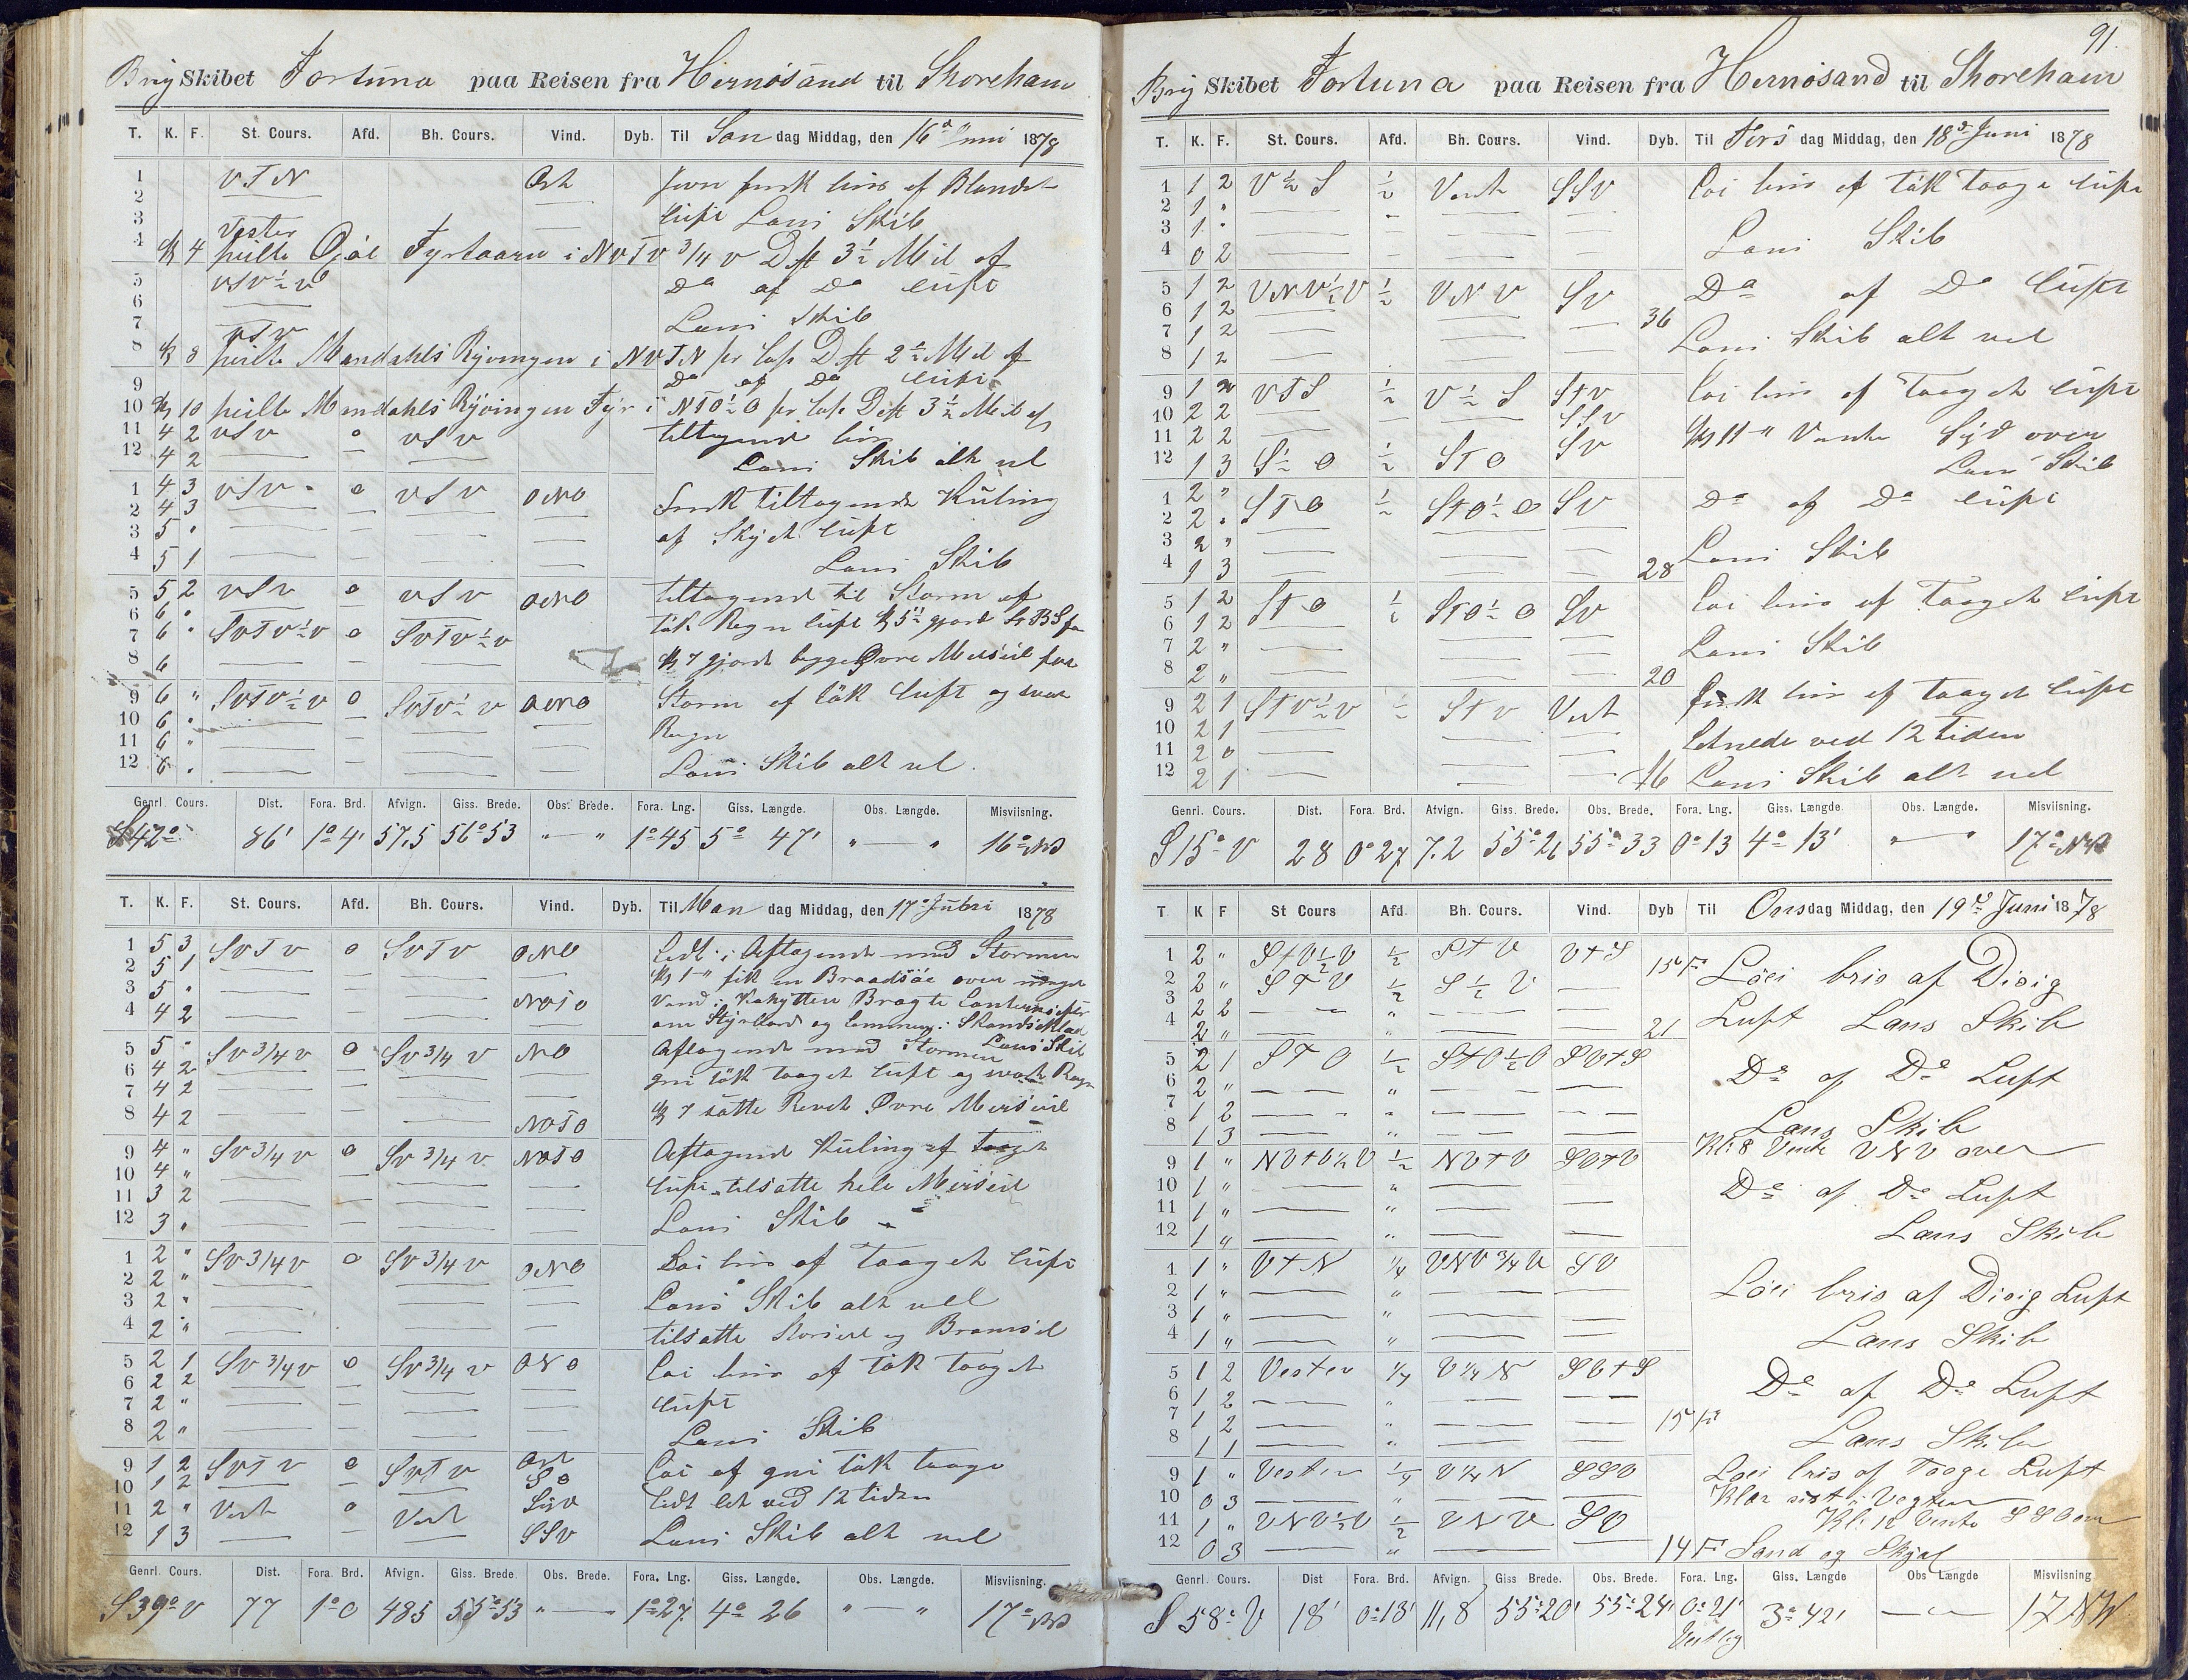 Brig Skibet Fortuna paa Reisen fra Hernösand til Shoreham
T. K. F. St. Cours. Afd. Bh. Cours. Vind. Dyb. Til Søn dag Middag, den 16d Juni 1878
1 VTN Ost frisk bris af Blandet
2 luft Lens Skib
3 Vester
4 Kl 4 peilte Fyrtaarn i NVTV 3/4 V Dist 3½ Mil af
5 VSV½V Do af Do luft
6
7 Lens Skib
8 VSV
Kl 8 peilte Mandahls Ryvingen i NVTN pr Cops Dist 2½ Mil af
9 Do af Do luft
10 Kl 10 peilte Mandahls Ryvingen Fyr i NTO½O pr Cops Dist 3½ Mil af
11 4 2 VSV 0 VSV tiltagende bris
12 4 2 Lens Skib alt vel
1 4 3 VSV 0 VSV ONO Frisk tiltagende Kuling
2 4 3 af Skyet luft
3 5 "
4 5 1 Lens Skib
5 5 2 VSV 0 VSV ONO tiltagende til Storm af
6 6 " tük Regn luft Kl 5½ gjord
7 6 " SVTV½V 0 SVTV½V Kl 7 gjorde begge Øvre Merseil fast
8 6
9 6 " SVTV½V 0 SVTV½V ONO Storm af tük luft og svær
10 6 " Regn
11 6 "
12 6 " Lens Skib alt vel
Genrl. Cours. Dist. Fora. Brd. Afvign. Giss. Brede. Obs. Brede. Fora. Lng. Giss. Længde. Obs. Længde. Misviisning.
S42° 86' 1°4' 57,5 56°53 " — " 1°45 5° 47' " — " 16° NV
T. K. F. St. Cours. Afd. Bh. Cours. Vind. Dyb. Til Man dag Middag, den 17d Juni 1878
1 5 3 SVTV 0 SVTV ONO Lidt i Aftagende med Stormen
2 5 1 Kl 1 " fik en Braadsöe over meget
3 5 " NOTO Vand i Kahytten Bragte Lanternefyr
4 4 2 om Styrbord og
5 5 " SV 3/4 V 0 SV 3/4 V NO Aftagende med Stormen Lens Skib
6 4 2 tük taaget luft og svær Regn
7 4 2
8 4 2 NOTO Kl 7 satte Revet Øvre Merseil
9 4 " SV 3/4 V 0 SV 3/4 V NOTO Aftagende Kuling af Taaget
10 4 " luft tilsatte hele Merseil
11 3 2
12 3 " Lens Skib
1 2 " SV 3/4 V 0 SV 3/4 V ONO Löi bris af Taaget luft
2 2 "
3 2 " Lens Skib alt vel
4 2 " tilsatte Storseil og Bramseil
5 2 1 SV 3/4 V 0 SV 3/4 V ONO Löi bris af tük Taaget
6 2 2
7 2 " luft
8 2 " Lens Skib
9 1 2 SVTV 0 SVTV Ost Löi af tük taage
10 1 2 SO
11 2 " Vest 0 Vest Syd lidt let ved 12 tiden
12 1 3 SSV Lens Skib alt vel
Genrl. Cours. Dist. Fora. Brd. Afvign. Giss. Brede. Obs. Brede. Fora. Lng. Giss. Længde. Obs. Længde. Misviisning.
S39° V 77 1°0 485 55°53 " — 1°27 4° 26 " — " 17° NV
91.
Brig Skibet Fortuna paa Reisen fra Hernösand til Shoreham
T. K. F. St. Cours. Afd. Bh. Cours. Vind. Dyb. Til Tirs dag Middag, den 18d Juni 1878
1 1 2 V½S ½ Vest SSV Löi bris af tük Taage luft
2 1 "
3 1 " Lens Skib
4 0 2
5 1 2 VNV½V ½ VNV SV Do af Do luft
6 1 2 36
7 1 2 Lens Skib alt vel
8 1 2
9 1 2 VTS ½ V½S STV Löi bris af Taaget luft
10 2 2 SSV
11 2 2 SV Kl 11 " Vente Syd over
12 1 3 S½O ½ STO Lens Skib
1 2 " STO ½ STO½O SV Do af Do luft
2 2 "
3 2 " Lens Skib
4 1 3 28
5 1 2 STO ½ STO½O SV Löi bris af Taaget luft
6 1 2
7 2 " Lens Skib
8 2 " 20
9 2 1 STV½V ½ STV Vest frisk bris af taaget luft
10 2 1 letnede ved 12 tiden
11 2 0
12 2 1 16 Lens Skib alt vel
Genrl. Cours. Dist. Fora. Brd. Afvign. Giss. Brede. Obs. Brede. Fora. Lng. Giss. Længde. Obs. Længde. Misviisning.
S15° V 28 0°27 7.2 55°26 55°33 0°13 4° 13' " — " 17° NV
T. K F St Cours Afd. Bh. Cours. Vind. Dyb Til Ons dag Middag, den 19de Juni 1878
1 2 " S+V½V ½ S+V V+S
2 2 " S+V ½ S½V 15 F Löei bris af Disig
3 2 2 "
4 2 " " 21 Luft Lens Skib
5 2 1 S+O ½ S+O½O SV+S
6 2 " " De af De Luft
7 1 2 "
8 1 3 " Lens Skib
Kl: 8 Vente VNV over
9 1 " NV+V½V ½ NV+V SV+V
10 1 " " De af De Luft
11 1 " "
12 1 " " Lens Skib
1 1 " V+N ¼ VNV ¾ V SV
2 1 " " Löei bris af Disig Luft
3 1 " "
4 1 " " Lens Skib
5 1 2 Vester ¼ V ¼ N SV+S De af De Luft
6 1 2 "
7 1 2 " 15 F
8 1 1 " Lens Skib
9 1 " Vester ¼ V ¼ N SSV Löei bris af Taage Luft
10 0 3 " Klar sidst i Vagten
11 1 " VNV½V ½ VNV SV Kl: 12 Vente SSO over
12 0 3 " 14 F Sand og Skjæl
Genrl. Cours. Dist Fora. Brd. Afvign. Giss Brede. Obs. Brede. Fora. Lng. Giss. Længde Obs Længde Misviisning
S 58° V 18' 0°13' 11,8 55°20' 55°24' 0°21' 3° 42' — " — 17 NW
Vestlig